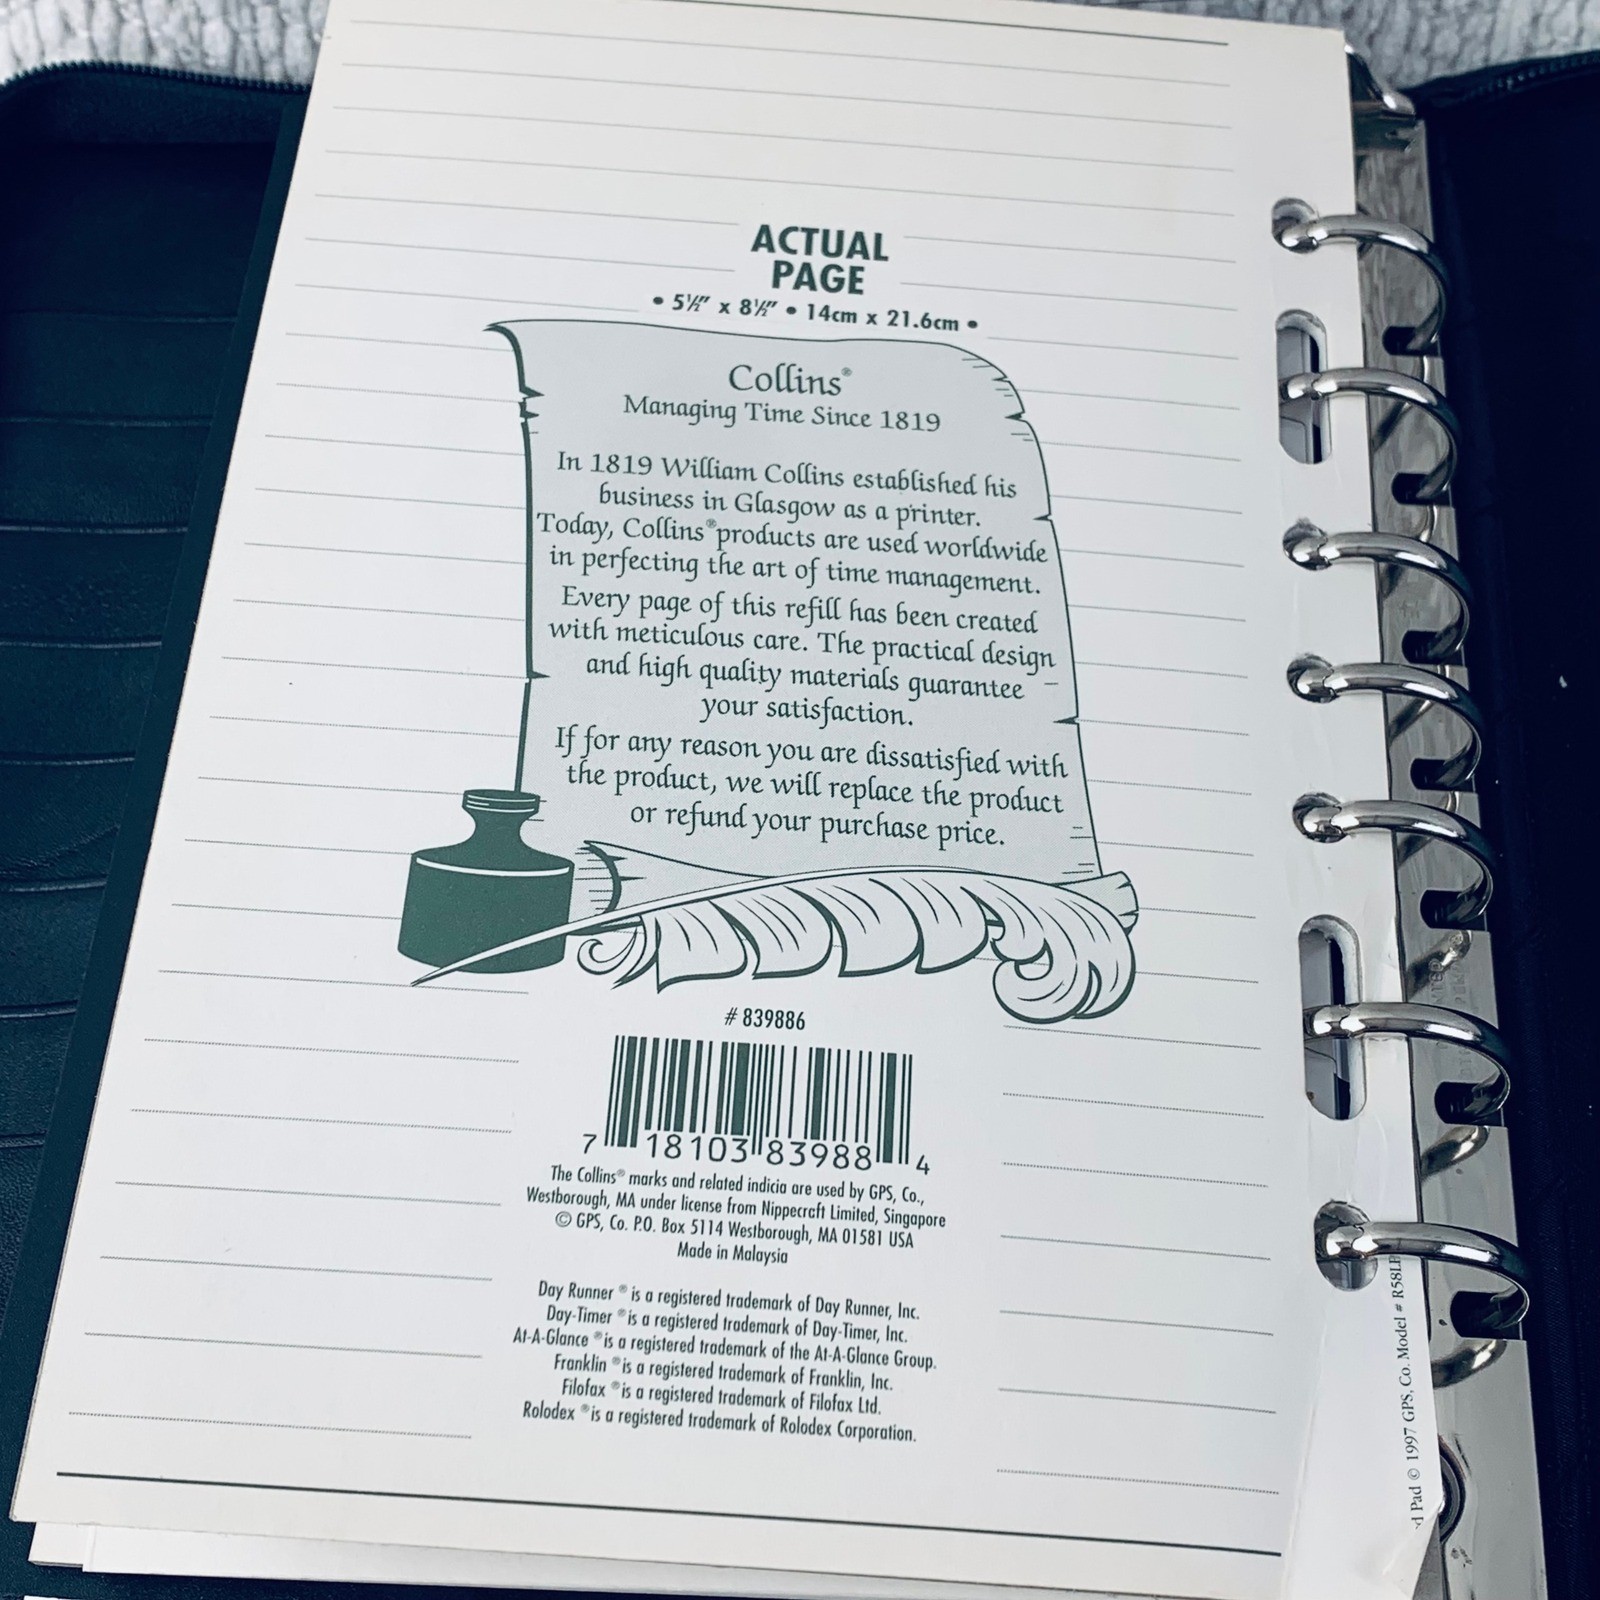 ACTUAL
PAGE
• 5½" x 8½" • 14cm x 21.6cm •
Collins®
Managing Time Since 1819
In 1819 William Collins established his
business in Glasgow as a printer.
Today, Collins® products are used worldwide
in perfecting the art of time management.
Every page of this refill has been created
with meticulous care. The practical design
and high quality materials guarantee
your satisfaction.
If for any reason you are dissatisfied with
the product, we will replace the product
or refund your purchase price.
# 839886
7 18103 83988 4
The Collins® marks and related indicia are used by GPS, Co.,
Westborough, MA under license from Nippecraft Limited, Singapore
© GPS, Co. P.O. Box 5114 Westborough, MA 01581 USA
Made in Malaysia
Day Runner ® is a registered trademark of Day Runner, Inc.
Day-Timer ® is a registered trademark of Day-Timer, Inc.
At-A-Glance ® is a registered trademark of the At-A-Glance Group.
Franklin ® is a registered trademark of Franklin, Inc.
Filofax ® is a registered trademark of Filofax Ltd.
Rolodex ® is a registered trademark of Rolodex Corporation.
Pad © 1997 GPS, Co. Model #